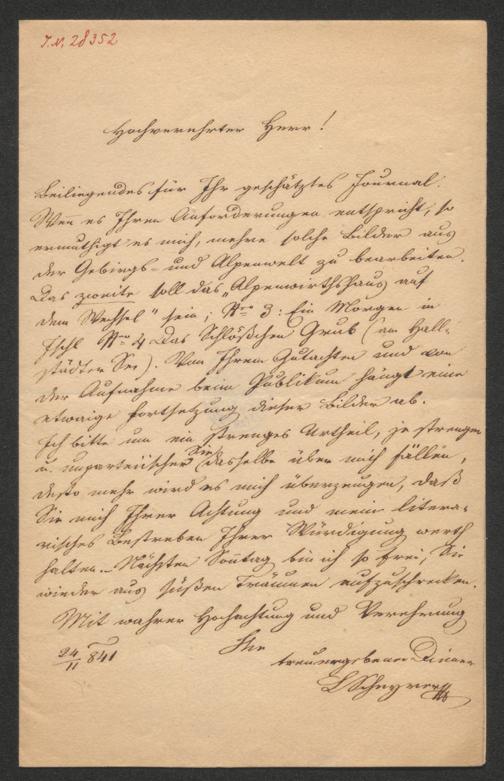 I.N. 28352
Hochverehrter Herr!
Beiliegendes für Ihr geschätztes Journal.
Wen es Ihren Anforderungen entspricht, so
ermuthigt es mich, mehre solche Bilder aus
der Gebirgs- und Alpenwelt zu bearbeiten.
Das zweite soll das „Alpenwirthshaus auf
dem Wechsel" sein; Nro 3: Ein Morgen in
Ischl Nro 4 Das Schlößchen Grub (am Hall-
städter See). Von Ihrem Gutachten und von
der Aufnahme beim Publikum hängt eine
etwaige Fortsetzung dieser Bilder ab.
Ich bitte um ein strenges Urtheil, je strenger
u. unparteiischer Sie dasselbe über mich fällen,
desto mehr wird es mich überzeugen, daß
Sie mich Ihrer Achtung und mein litera-
risches Bestreben Ihrer Würdigung werth
halten. – Nächsten Sontag bin ich so frei, Sie
wieder aus süßen Träumen aufzuschrecken.
Mit wahrer Hochachtung und Verehrung
24/11 841 Ihr
treuergebener Diener
L Scheyrer